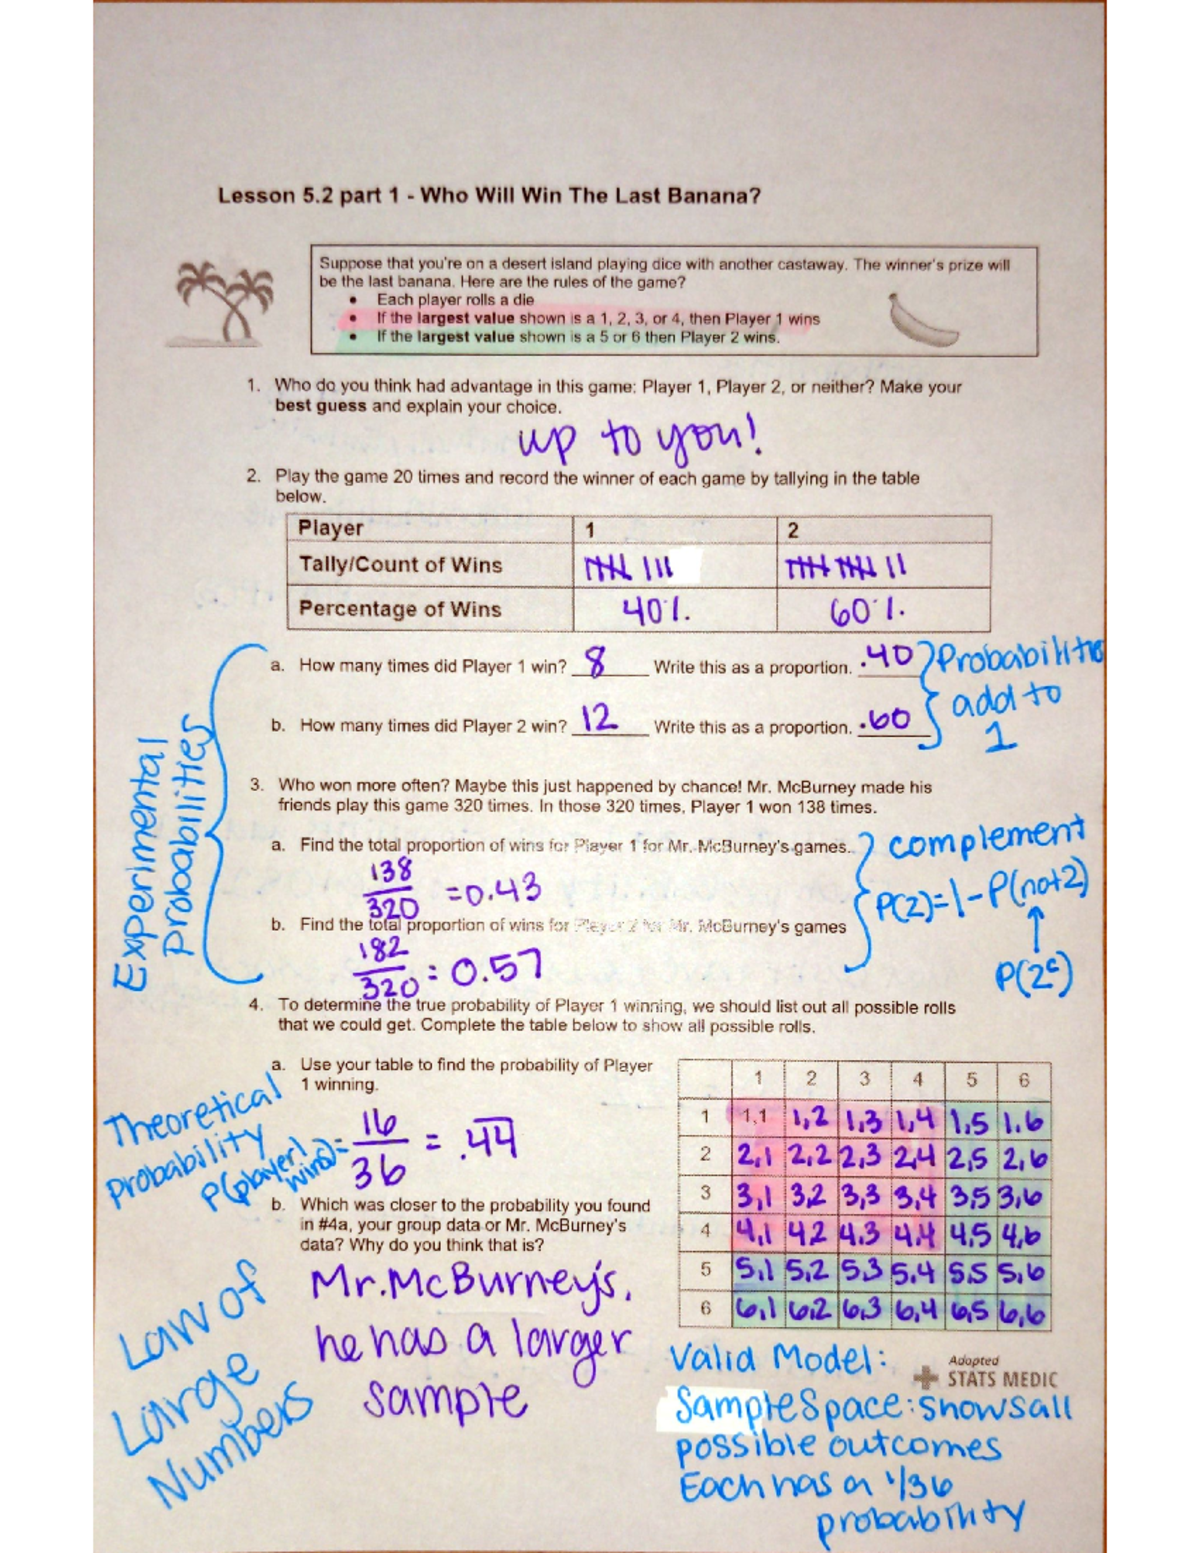 Lesson 5.2 part 1 - Who Will Win The Last Banana?
Suppose that you're on a desert island playing dice with another castaway. The winner's prize will
be the last banana. Here are the rules of the game?
• Each player rolls a die
• If the largest value shown is a 1, 2, 3, or 4, then Player 1 wins
• If the largest value shown is a 5 or 6 then Player 2 wins.
1. Who do you think had advantage in this game: Player 1, Player 2, or neither? Make your
best guess and explain your choice.
up to you!
2. Play the game 20 times and record the winner of each game by tallying in the table
below.
Player 1 2
Tally/Count of Wins
Percentage of Wins 40%. 60%.
a. How many times did Player 1 win? 8 Write this as a proportion. .40
b. How many times did Player 2 win? 12 Write this as a proportion. .60
Probabilities
add to
1
Experimental
probabilities
3. Who won more often? Maybe this just happened by chance! Mr. McBurney made his
friends play this game 320 times. In those 320 times, Player 1 won 138 times.
a. Find the total proportion of wins for Player 1 for Mr. McBurney's games.
138
320
=0.43
b. Find the total proportion of wins for Player 2 for Mr. McBurney's games
182
320
= 0.57
complement
P(2)=1-P(not2)
↑
P(2ᶜ)
4. To determine the true probability of Player 1 winning, we should list out all possible rolls
that we could get. Complete the table below to show all possible rolls.
a. Use your table to find the probability of Player
1 winning.
Theoretical
probability
P(player1
wins)=
16
36
= .4̅4̅
b. Which was closer to the probability you found
in #4a, your group data or Mr. McBurney's
data? Why do you think that is?
Mr.McBurney's.
he has a larger
sample
Law of
Large
Numbers
1 2 3 4 5 6
1 1,1 1,2 1,3 1,4 1,5 1,6
2 2,1 2,2 2,3 2,4 2,5 2,6
3 3,1 3,2 3,3 3,4 3,5 3,6
4 4,1 4,2 4,3 4,4 4,5 4,6
5 5,1 5,2 5,3 5,4 5,5 5,6
6 6,1 6,2 6,3 6,4 6,5 6,6
Valid Model:
Adopted
STATS MEDIC
Sample Space: shows all
possible outcomes
Each has a 1/36
probability